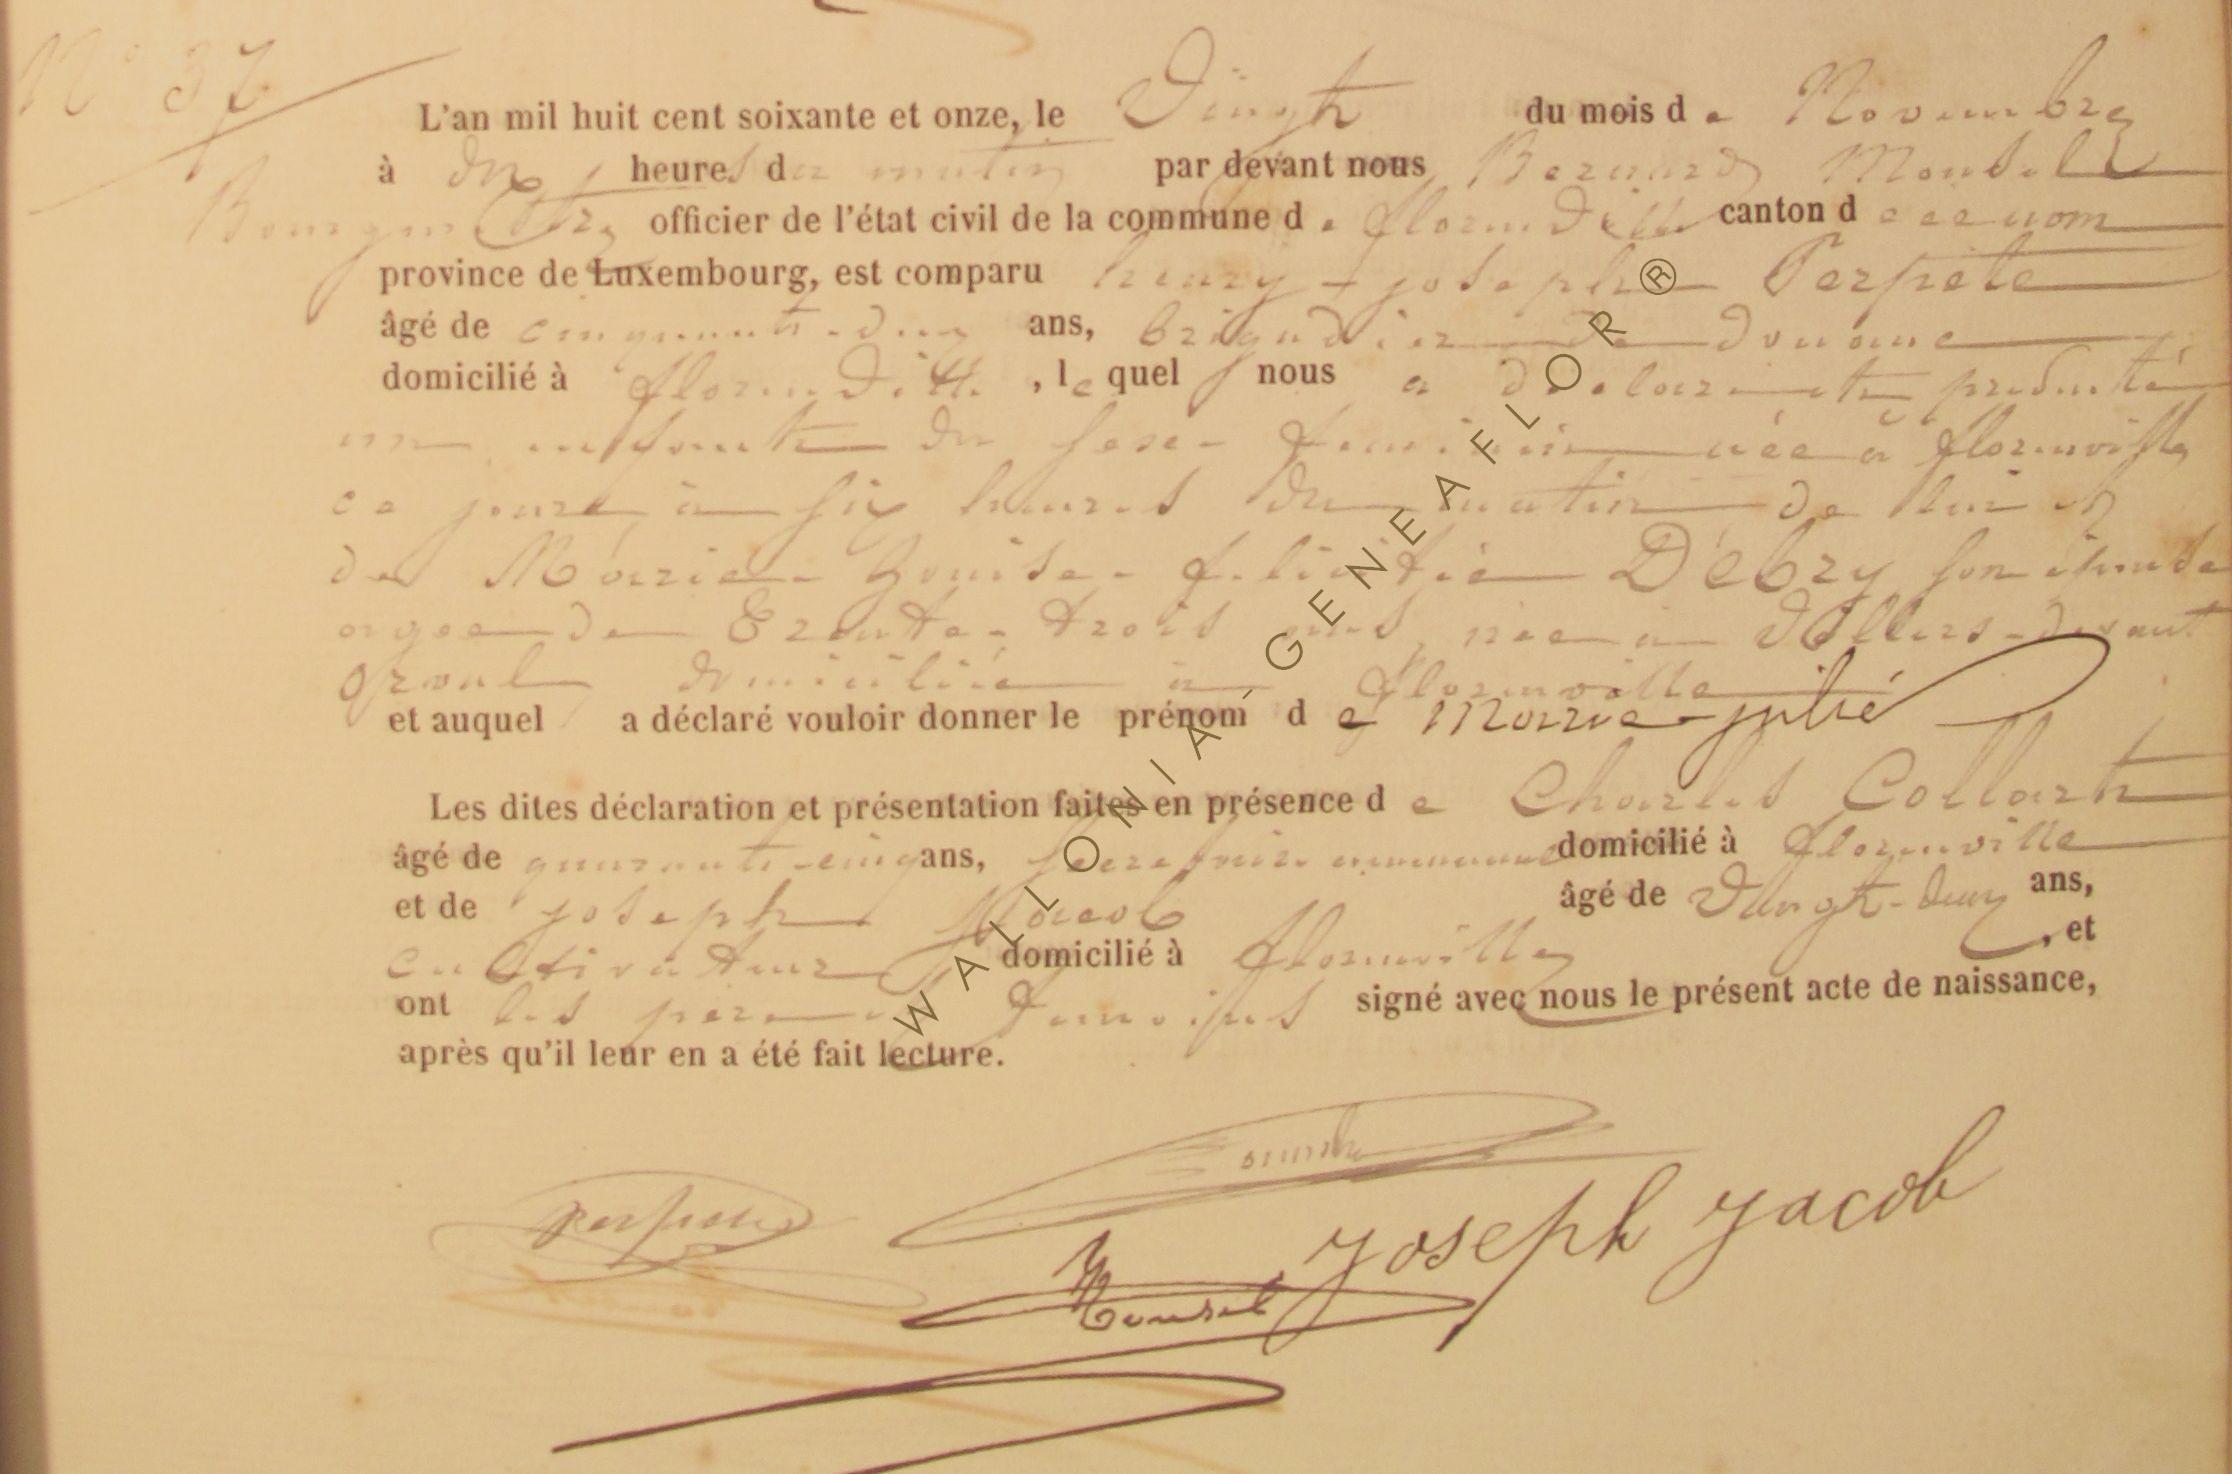 N° 37
L'an mil huit cent soixante et onze, le Vingt du mois de Novembre
à dix heures du matin par devant nous Bernard Monsel
Bourgmestre officier de l'état civil de la commune de florenville canton de ce nom
province de Luxembourg, est comparu henry-joseph Perpete
âgé de cinquante-deux ans, brigadier de douane
domicilié à florenville, lequel nous a déclaré et présenté
un enfant du sexe féminin née à florenville
ce jour à six heures du matin de lui et
de Marie Louise félicitée Débry son épouse
agée de Trente-trois ans, née à Villers-devant
Orval domiciliée à florenville
et auquel a déclaré vouloir donner le prénom de Marie-julie
Les dites déclaration et présentation faites en présence de Charles Collart
âgé de quarante-cinq ans, secrétaire communal domicilié à florenville
et de joseph Jacob âgé de Vingt-deux ans,
cultivateur domicilié à florenville, et
ont les père et témoins signé avec nous le présent acte de naissance,
après qu'il leur en a été fait lecture.
Perpete
Joseph Jacob
Monsel
WALLONIA GENEAFLOR®